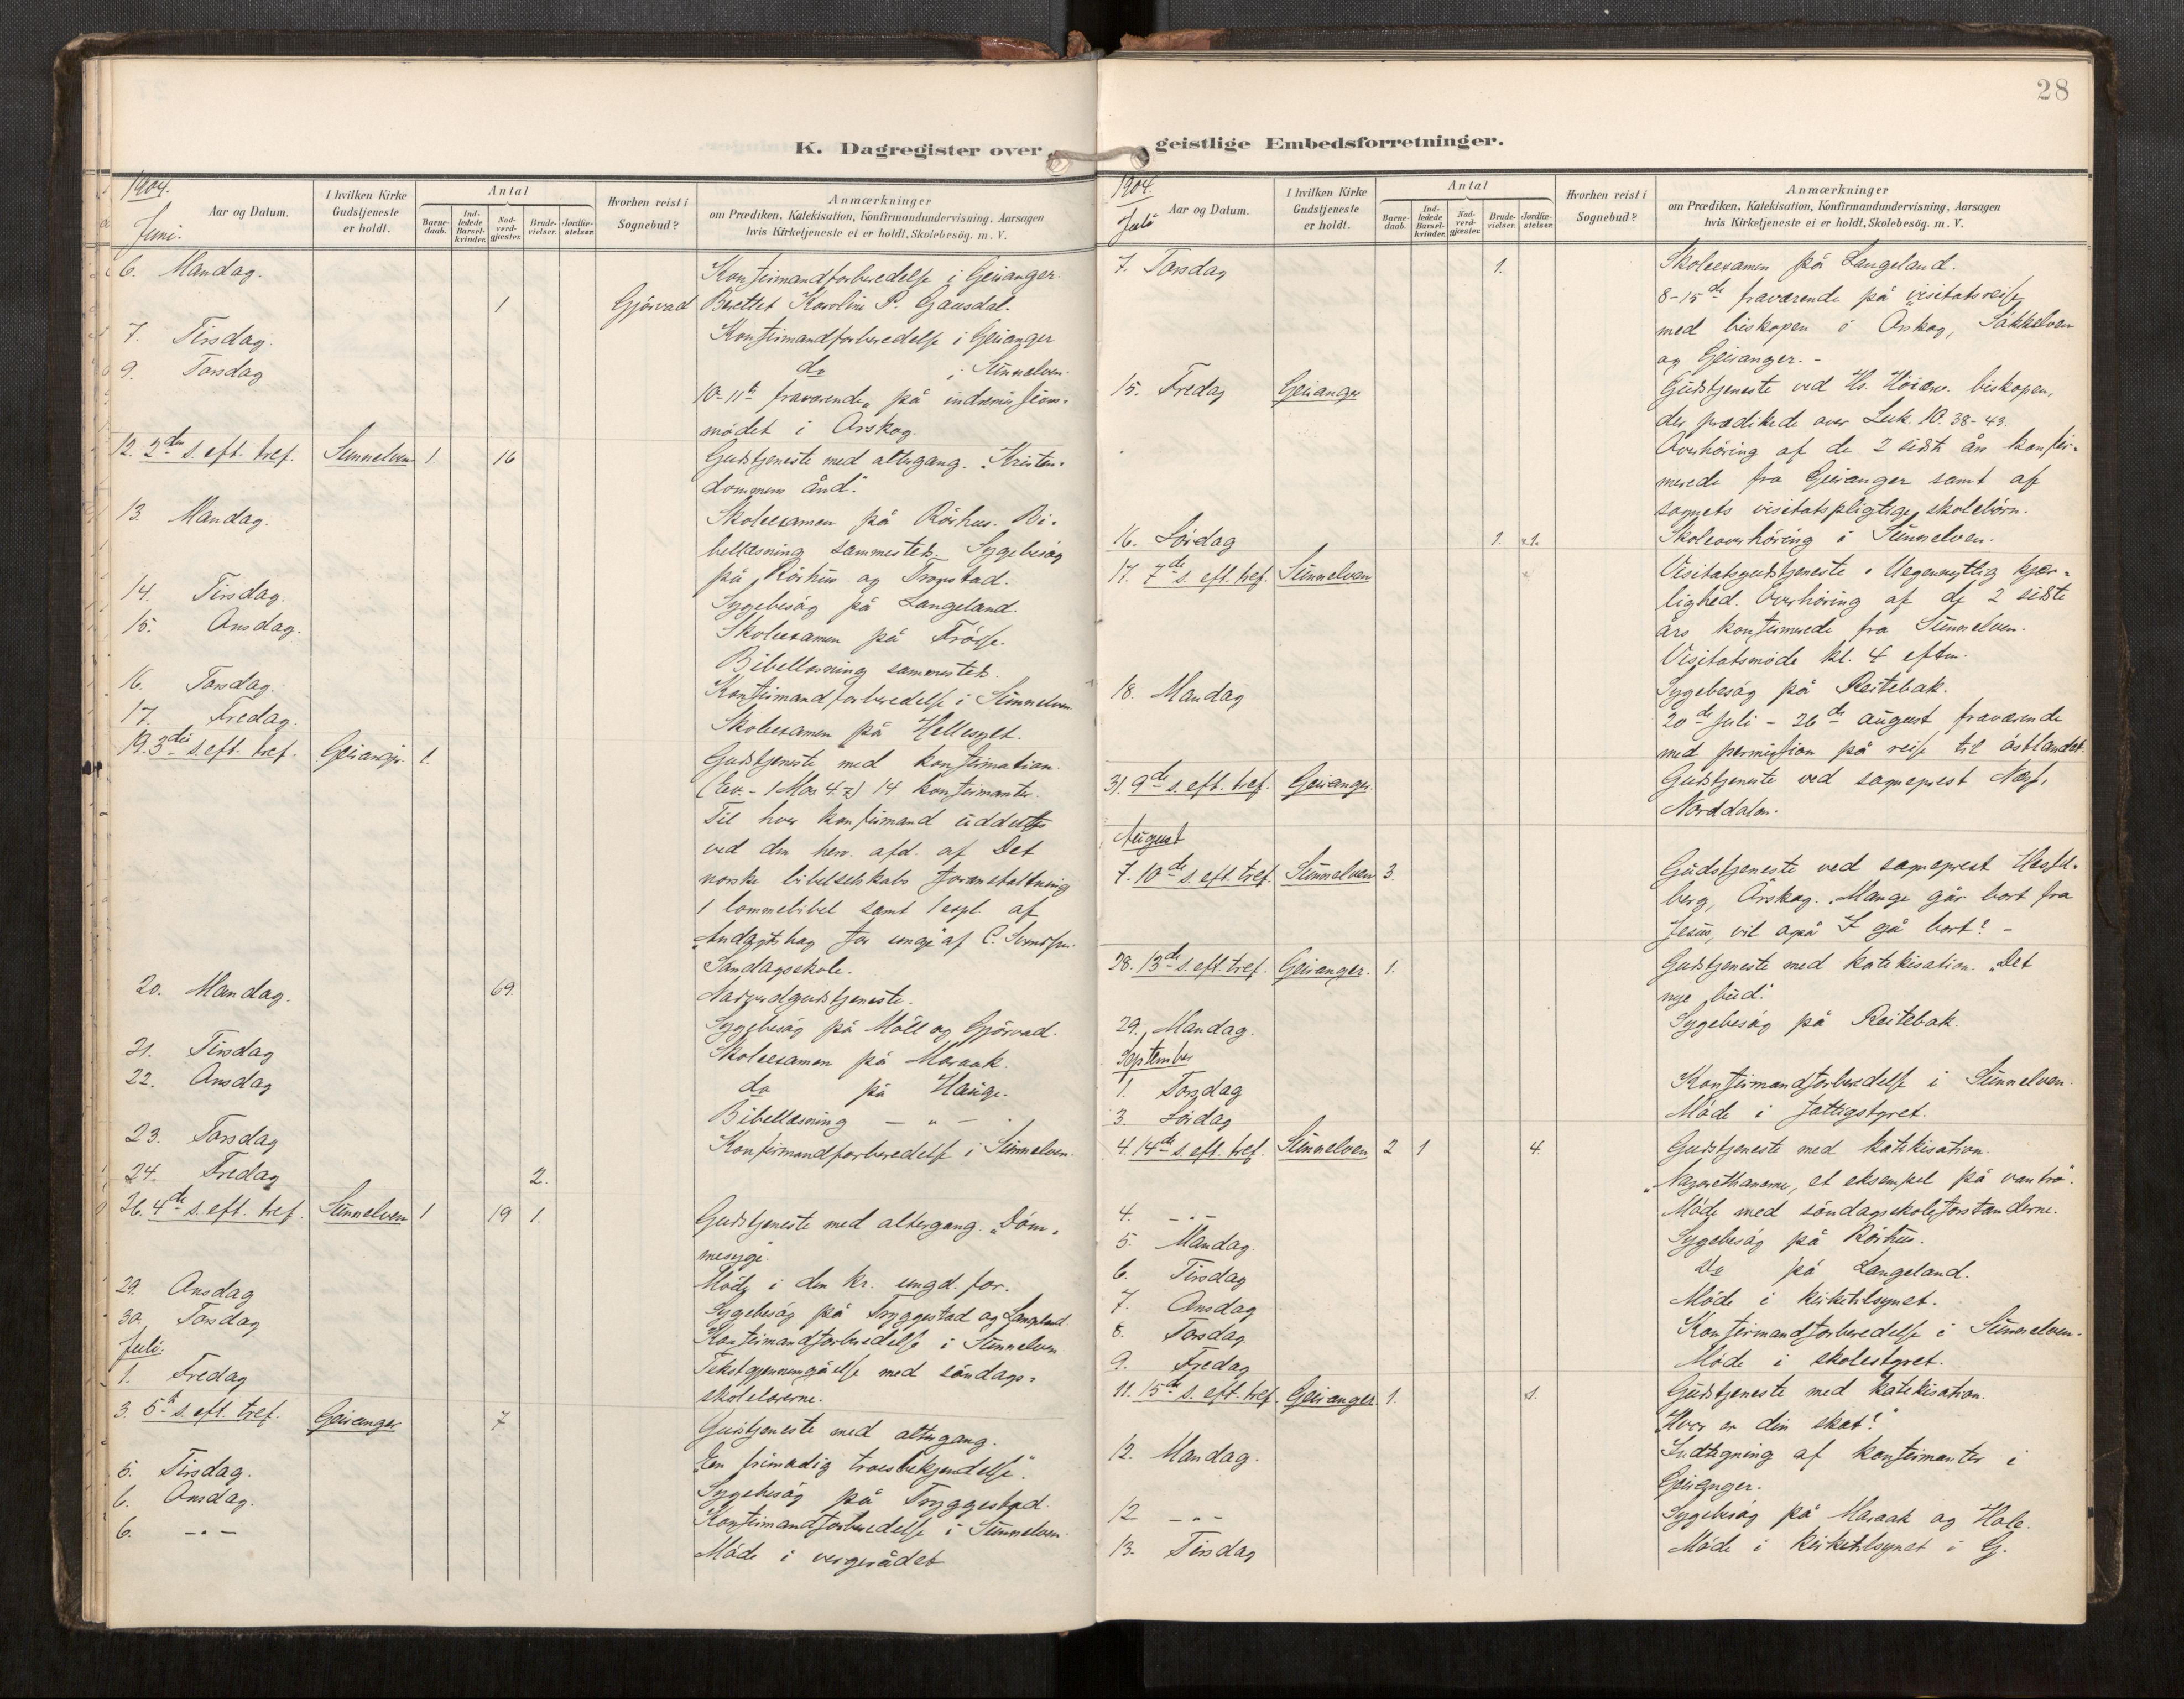 28
K. Dagregister over geistlige Embedsforretninger.
1904.
Juni.
Aar og Datum.
I hvilken Kirke Gudstjeneste er holdt.
Antal
Barne-daab.
Ind-ledede Barsel-kvinder.
Nad-verd-gjæster.
Brude-vielser.
Jordfæ-stelser.
Hvorhen reist i Sognebud?
Anmærkninger
om Prædiken, Katekisation, Konfirmandundervisning, Aarsagen
hvis Kirketjeneste ei er holdt, Skolebesög. m. V.
6. Mandag. Konfirmandforberedelse i Geiranger.
1 Gjörvad Berettet Karoline P. Gausdal.
7. Tirsdag. Konfirmandforberedelse i Geiranger
9. Torsdag do i Sunnelven.
10-11te fraværende på indremission-
mödet i Ørskog.
12. 2den s. eft. tref. Sunnelven 1. 16 Gudstjeneste med altergang. "Kristen-
dommens ånd."
13. Mandag. Skoleexamen på Rörhus. Bi-
bellæsning sammesteds. Sygebesög
på Rörhus og Tronstad.
14. Tirsdag. Sygebesög på Langeland.
15. Onsdag. Skoleexamen på
Bibellæsning sammesteds.
16. Torsdag. Konfirmandforberedelse i Sunnelven.
17. Fredag. Skoleexamen på Hellesylt.
19. 3die s. eft. tref. Geiranger. 1. Gudstjeneste med konfirmation.
(Ev. - 1 Mos 4.7) 14 konfirmanter.
Til hver konfirmand uddeltes
ved den herv. afd. af Det
norske bibelselskabs foranstaltning
1 lommebibel samt 1 expl. af
"Andagtsbog for unge" af C.
Söndagsskole.
20. Mandag. 69. Nadverdgudstjeneste.
Sygebesög på Möll og Gjörvad.
21. Tirsdag Skoleexamen på Maraak.
22. Onsdag do på Hauge.
Bibellæsning - " - .
23. Torsdag Konfirmandforberedelse i Sunnelven.
24. Fredag 2.
26. 4de s. eft. tref. Sunnelven 1 19 1. Gudstjeneste med altergang. "Döm-
mesyge".
29. Onsdag Möde i den kr. ungd. for.
30. Torsdag Sygebesög på Tryggestad og Langeland.
Juli. Konfirmandforberedelse i Sunnelven.
1. Fredag Tekstgjennemgåelse med söndags-
skolelærerne.
3. 5te s. eft. tref. Geiranger 7 Gudstjeneste med altergang.
"En frimodig troesbekjendelse".
5. Tirsdag. Sygebesög på Tryggestad.
6. Onsdag. Konfirmandforberedelse i Sunnelven.
6. - " - Möde i vergerådet
1904.
Juli
Aar og Datum.
I hvilken Kirke Gudstjeneste er holdt.
Antal
Barne-daab.
Ind-ledede Barsel-kvinder.
Nad-verd-gjæster.
Brude-vielser.
Jordfæ-stelser.
Hvorhen reist i Sognebud?
Anmærkninger
om Prædiken, Katekisation, Konfirmandundervisning, Aarsagen
hvis Kirketjeneste ei er holdt, Skolebesög. m. V.
7. Torsdag 1. Skoleexamen på Langeland.
8-15de fraværende på visitatsreise
med biskopen i Ørskog, Søkkelven
og Geiranger. -
15. Fredag Geiranger Gudstjeneste ved Hs. Höiærv. biskopen,
der prædikede over Luk. 10. 38-43.
Overhöring af de 2 sidste års konfir-
merede fra Geiranger samt af
sognets visitatspligtige skolebörn.
16. Lördag 1. 1. Skoleoverhöring i Sunnelven.
17. 7de s. eft. tref. Sunnelven Visitatsgudstjeneste. Uegennyttig kjær-
lighed. Overhöring af de 2 sidste
års konfirmerede fra Sunnelven.
Visitatsmöde kl. 4 eftm.
18. Mandag Sygebesög på Reitebak.
20de Juli - 26de august fraværende
med permission på reise til östlandet.
31. 9de s. eft. tref. Geiranger. Gudstjeneste ved sogneprest
Norddalen.
August
7. 10de s. eft. tref. Sunnelven 3. Gudstjeneste ved sogneprest
berg, Ørskog. "Mange går bort fra
Jesus, vil også I gå bort? -
28. 13de s. eft. tref. Geiranger. 1. Gudstjeneste med katekisation. "Det
nye bud."
29. Mandag. Sygebesög på Reitebak.
September
1. Torsdag Konfirmandforberedelse i Sunnelven.
3. Lördag Möde i fattigstyret.
4. 14de s. eft. tref. Sunnelven 2 1 4. Gudstjeneste med katekisation.
"Nazarethanerne, et eksempel på vantro".
4. - " - Möde med söndagsskoleforstanderne.
5. Mandag. Sygebesög på Rörhus.
6. Tirsdag do på Langeland.
7. Onsdag Möde i kirketilsynet.
8. Torsdag Konfirmandforberedelse i Sunnelven.
9. Fredag Möde i skolestyret.
11. 15de s. eft. tref. Geiranger. 1. 1. Gudstjeneste med katekisation.
"Hvor er din skat?"
12. Mandag. Indtegning af konfirmanter i
Geiranger.
12 - " - Sygebesög på Maraak og Hole.
13. Tirsdag Möde i kirketilsynet i G.